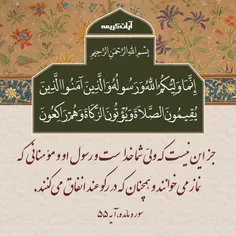 آیات کریمه
بِسْمِ اللَّهِ الرَّحْمَنِ الرَّحِيمِ
إِنَّمَا وَلِيُّكُمُ اللَّهُ وَرَسُولُهُ وَالَّذِينَ آمَنُوا الَّذِينَ
يُقِيمُونَ الصَّلَاةَ وَيُؤْتُونَ الزَّكَاةَ وَهُمْ رَاكِعُونَ
جز این نیست که ولی شما خداست و رسول او و مؤمنانی که
نماز می‌خوانند و همچنان که در رکوعند انفاق می‌کنند.
سوره مائده، آیه ۵۵